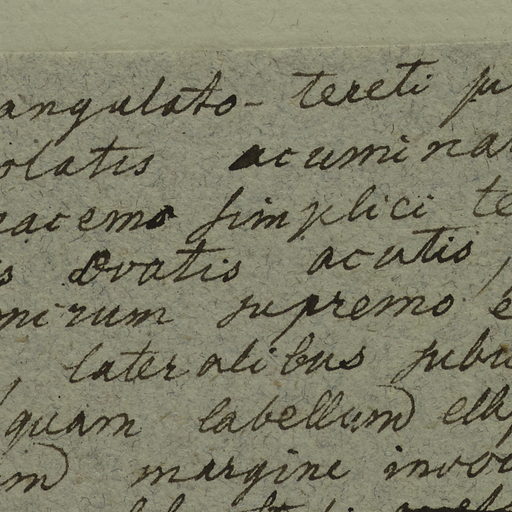 angulato-tereti
olatis acumina
racemo simplici te
s Ovatis acutis,
nirum supremo e
, lateralibus subu
quam labellum ellip
im margine invo